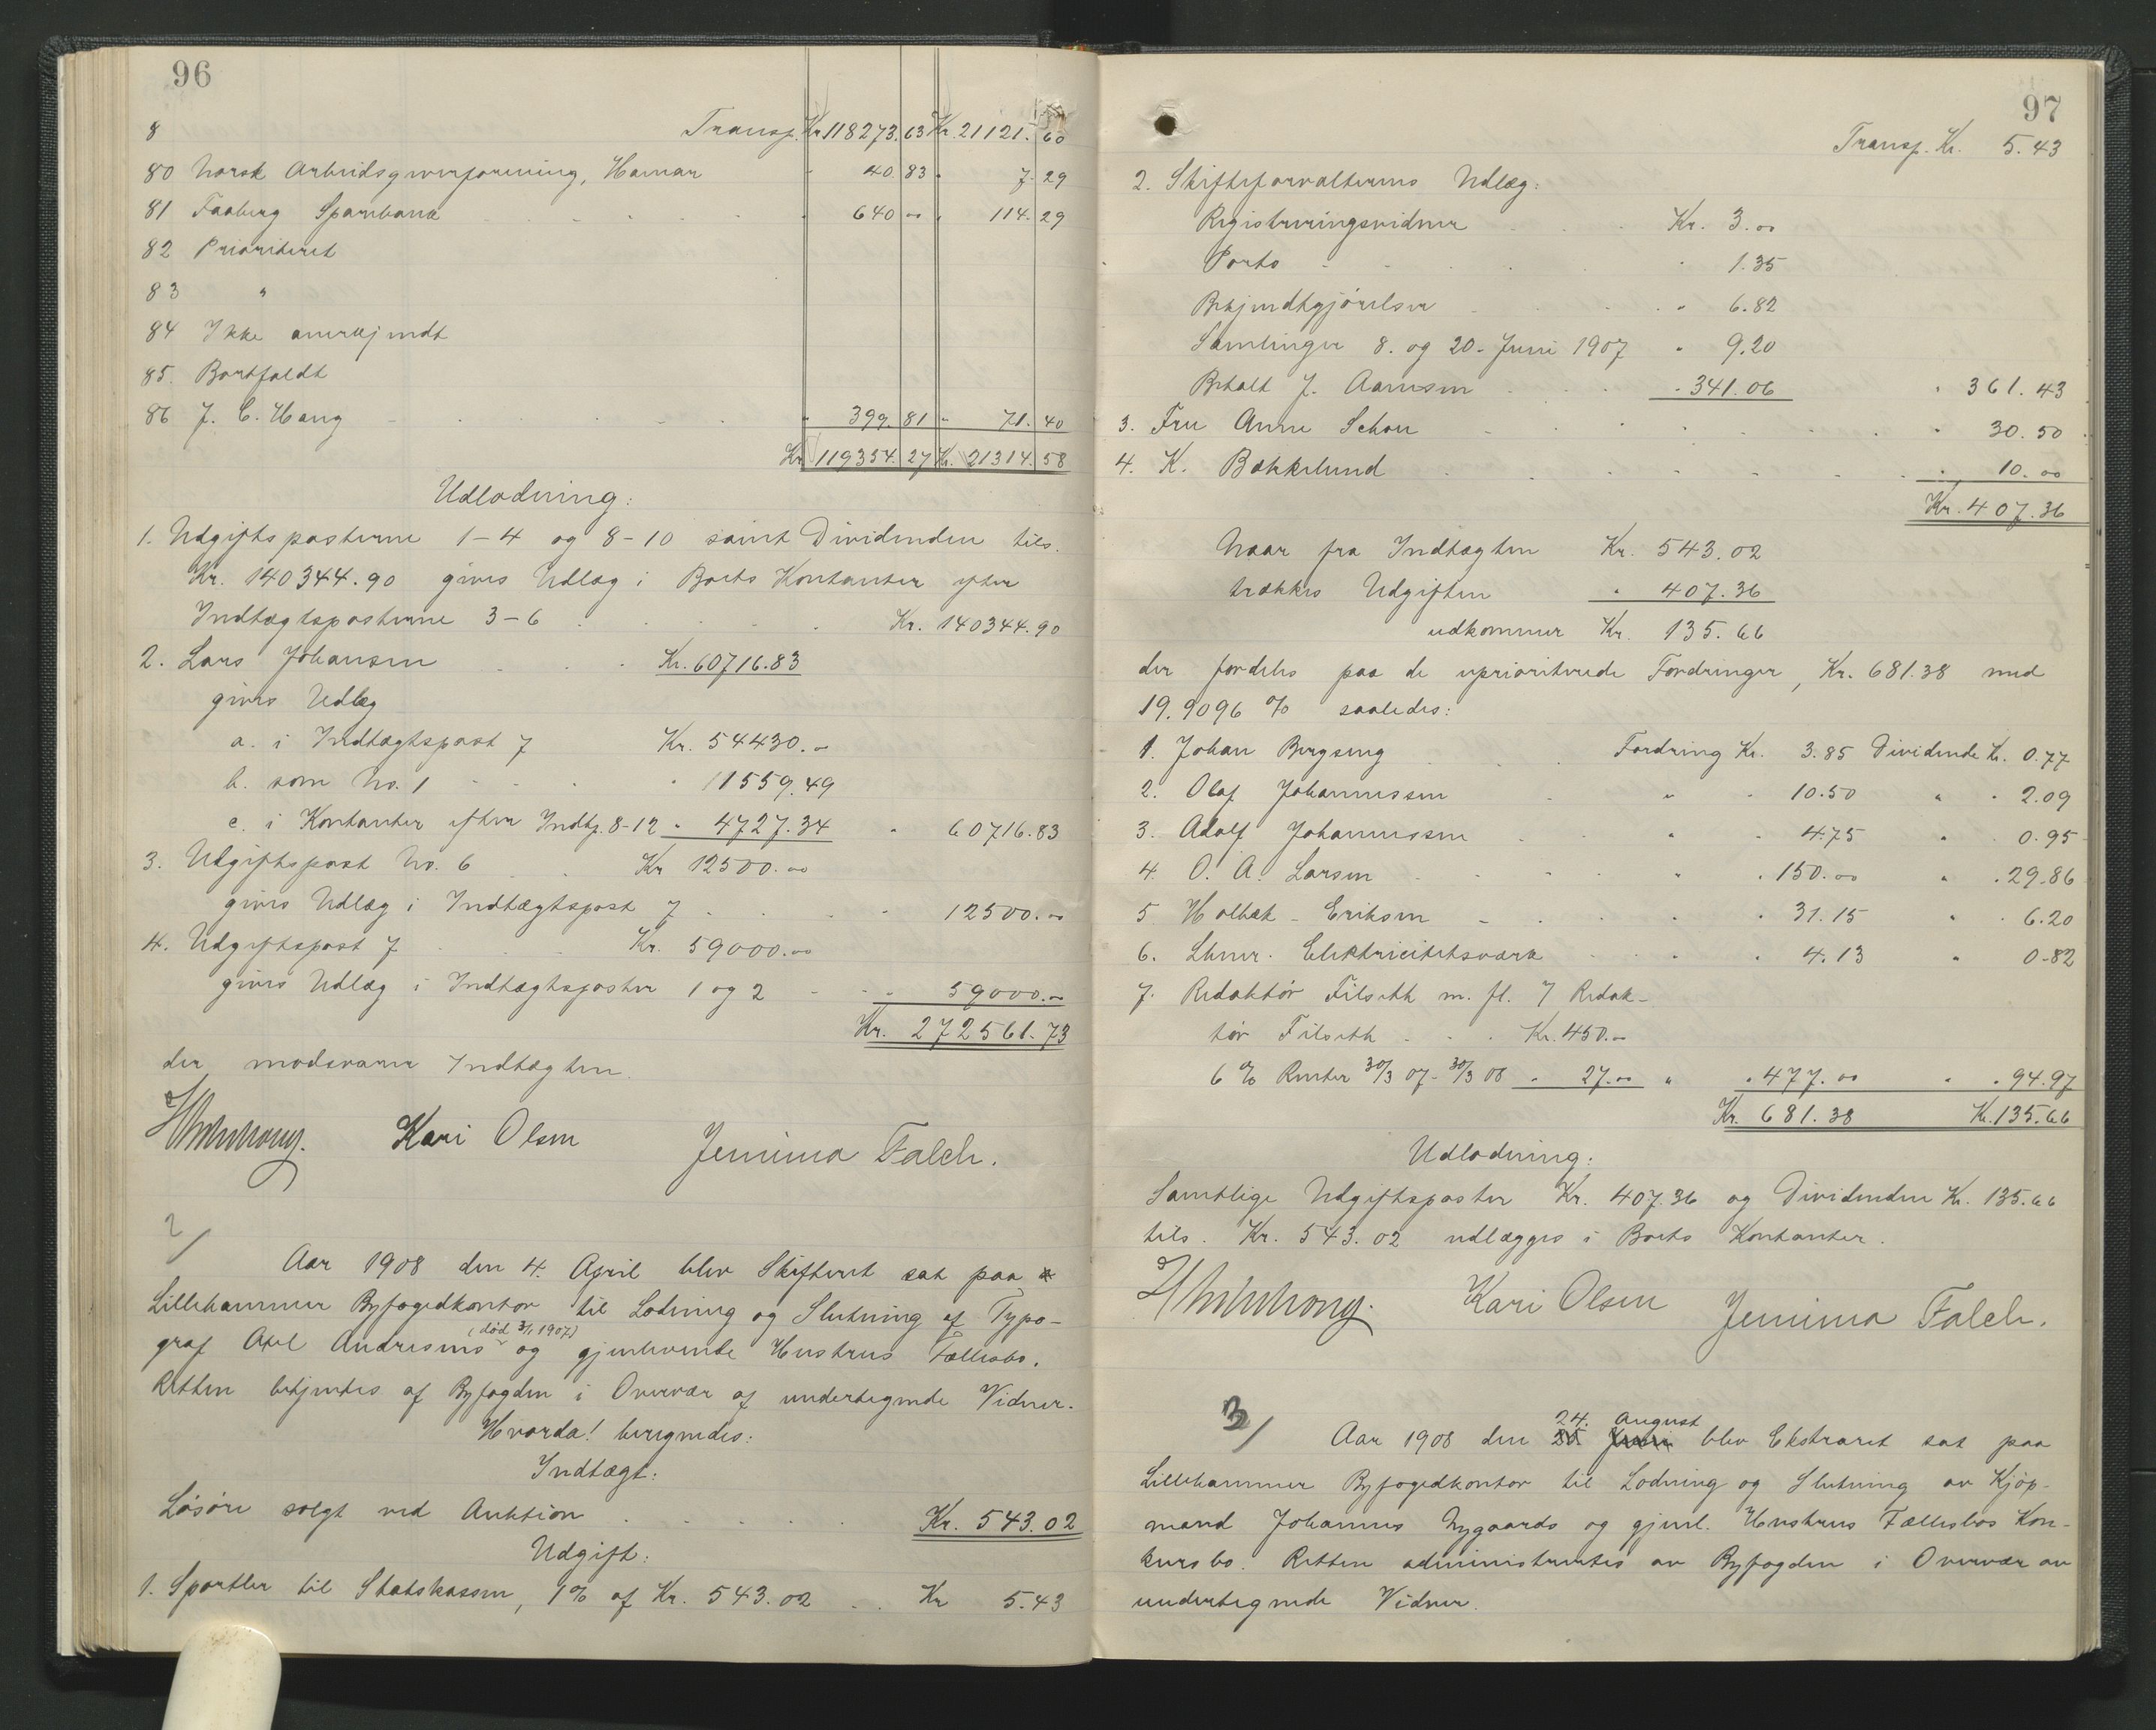 96
8 Transp. Kr. 118273.63 Kr. 21121.60
80 Norsk Arbeidsgiverforening, Hamar " 40.83 " 7.29
81 Faaberg Sparebank " 640 00 " 114.29
82 Prioriteret
83 "
84 Ikke anerkjendt
85. Bortfaldt
86 J. C. Haug " 399.81 " 71.40
Kr. 119354.27 Kr. 21314.58
Udlodning:
1. Udgiftsposterne 1-4 og 8-10 samt Dividenden tils.
Kr. 140344.90 gives Udlæg i Boets Kontanter efter
Indtægtsposterne 3-6 Kr. 140344.90
2. Lars Johansen Kr. 60716.83
gives Udlæg
a. i Indtægtspost 7 Kr. 54430.00
b. som No. 1 " 11559.49
c. i Kontanter efter Indtg. 8-12 " 4727.34 " 60716.83
3. Udgiftspost No. 6 Kr 12500.00
gives Udlæg i Indtægtspost 7 " 12500.00
4. Udgiftspost 7 Kr. 59000.00
gives Udlæg i Indtægtsposter 1 og 2 " 59000.00
Kr. 272561.73
der modsvarer Indtægten.
Kari Olsen Jemima Falch.
2/
Aar 1908 den 4. April blev Skifteret sat paa
Lillehammer Byfogedkontor til Lodning og Slutning af Typo-
graf Axel Andresens (død 3/1 1907) og gjenlevende Hustrus Fællesbo.
Retten betjentes af Byfogden i Overvær af undertegnede Vidner.
Hvorda! beregnedes:
Indtægt:
Løsøre solgt ved Auktion Kr. 543.02
Udgift:
1. Sportler til Statskassen, 1% af Kr. 543.02 Kr 5.43
97
Transp. Kr. 5.43
2. Skifteforvalterens Udlæg:
Registreringsvidner Kr. 3.00
Porto " 1.35
Bekjendtgjørelser " 6.82
Samlinger 8. og 20. Juni 1907 " 9.20
Betalt J. Aanesen " 341.06 " 361.43
3. Fru Anne Schou " 30.50
4. K. Bækkelund " 10.00
Kr. 407.36
Naar fra Indtægten Kr. 543.02
trækkes Udgiften " 407.36
udkommer Kr. 135.66
der fordeles paa de uprioriterede Fordringer, Kr. 681.38 med
19.9096 % saaledes:
1. Johan Bergseng Fordring Kr. 3.85 Dividende Kr. 0.77
2. Olaf Johannessen " " 10.50 " " 2.09
3. Adolf Johannessen " " 4.75 " 0.95
4. O. A. Larsen " " 150.00 " " 29.86
5. Holbæk-Eriksen " 31.15 " " 6.20
6. Lhmr. Elektricitetsværk " 4.13 " 0.82
7. Redaktør Filseth m. fl. 7 Redak-
tør Filseth Kr. 450.00
6 % Renter 30/3 07-30/3 08 " 27.00 " " 477.00 " " 94.97
Kr. 681.38 Kr. 135.66
Udlodning:
Samtlige Udgiftsposter Kr. 407.36 og Dividenden Kr. 135.66
tils. Kr. 543.02 udlægges i Boets Kontanter.
Kari Olsen Jemima Falch.
3/
Aar 1908 den 24. August blev Ekstraret sat paa
Lillehammer Byfogedkontor til Lodning og Slutning av Kjøp-
mand Johannes Nygaards og gjenl. Hustrus Fællesbos Kon-
kursbo. Retten administrertes av Byfogden i Overvær av
undertegnede Vidner.